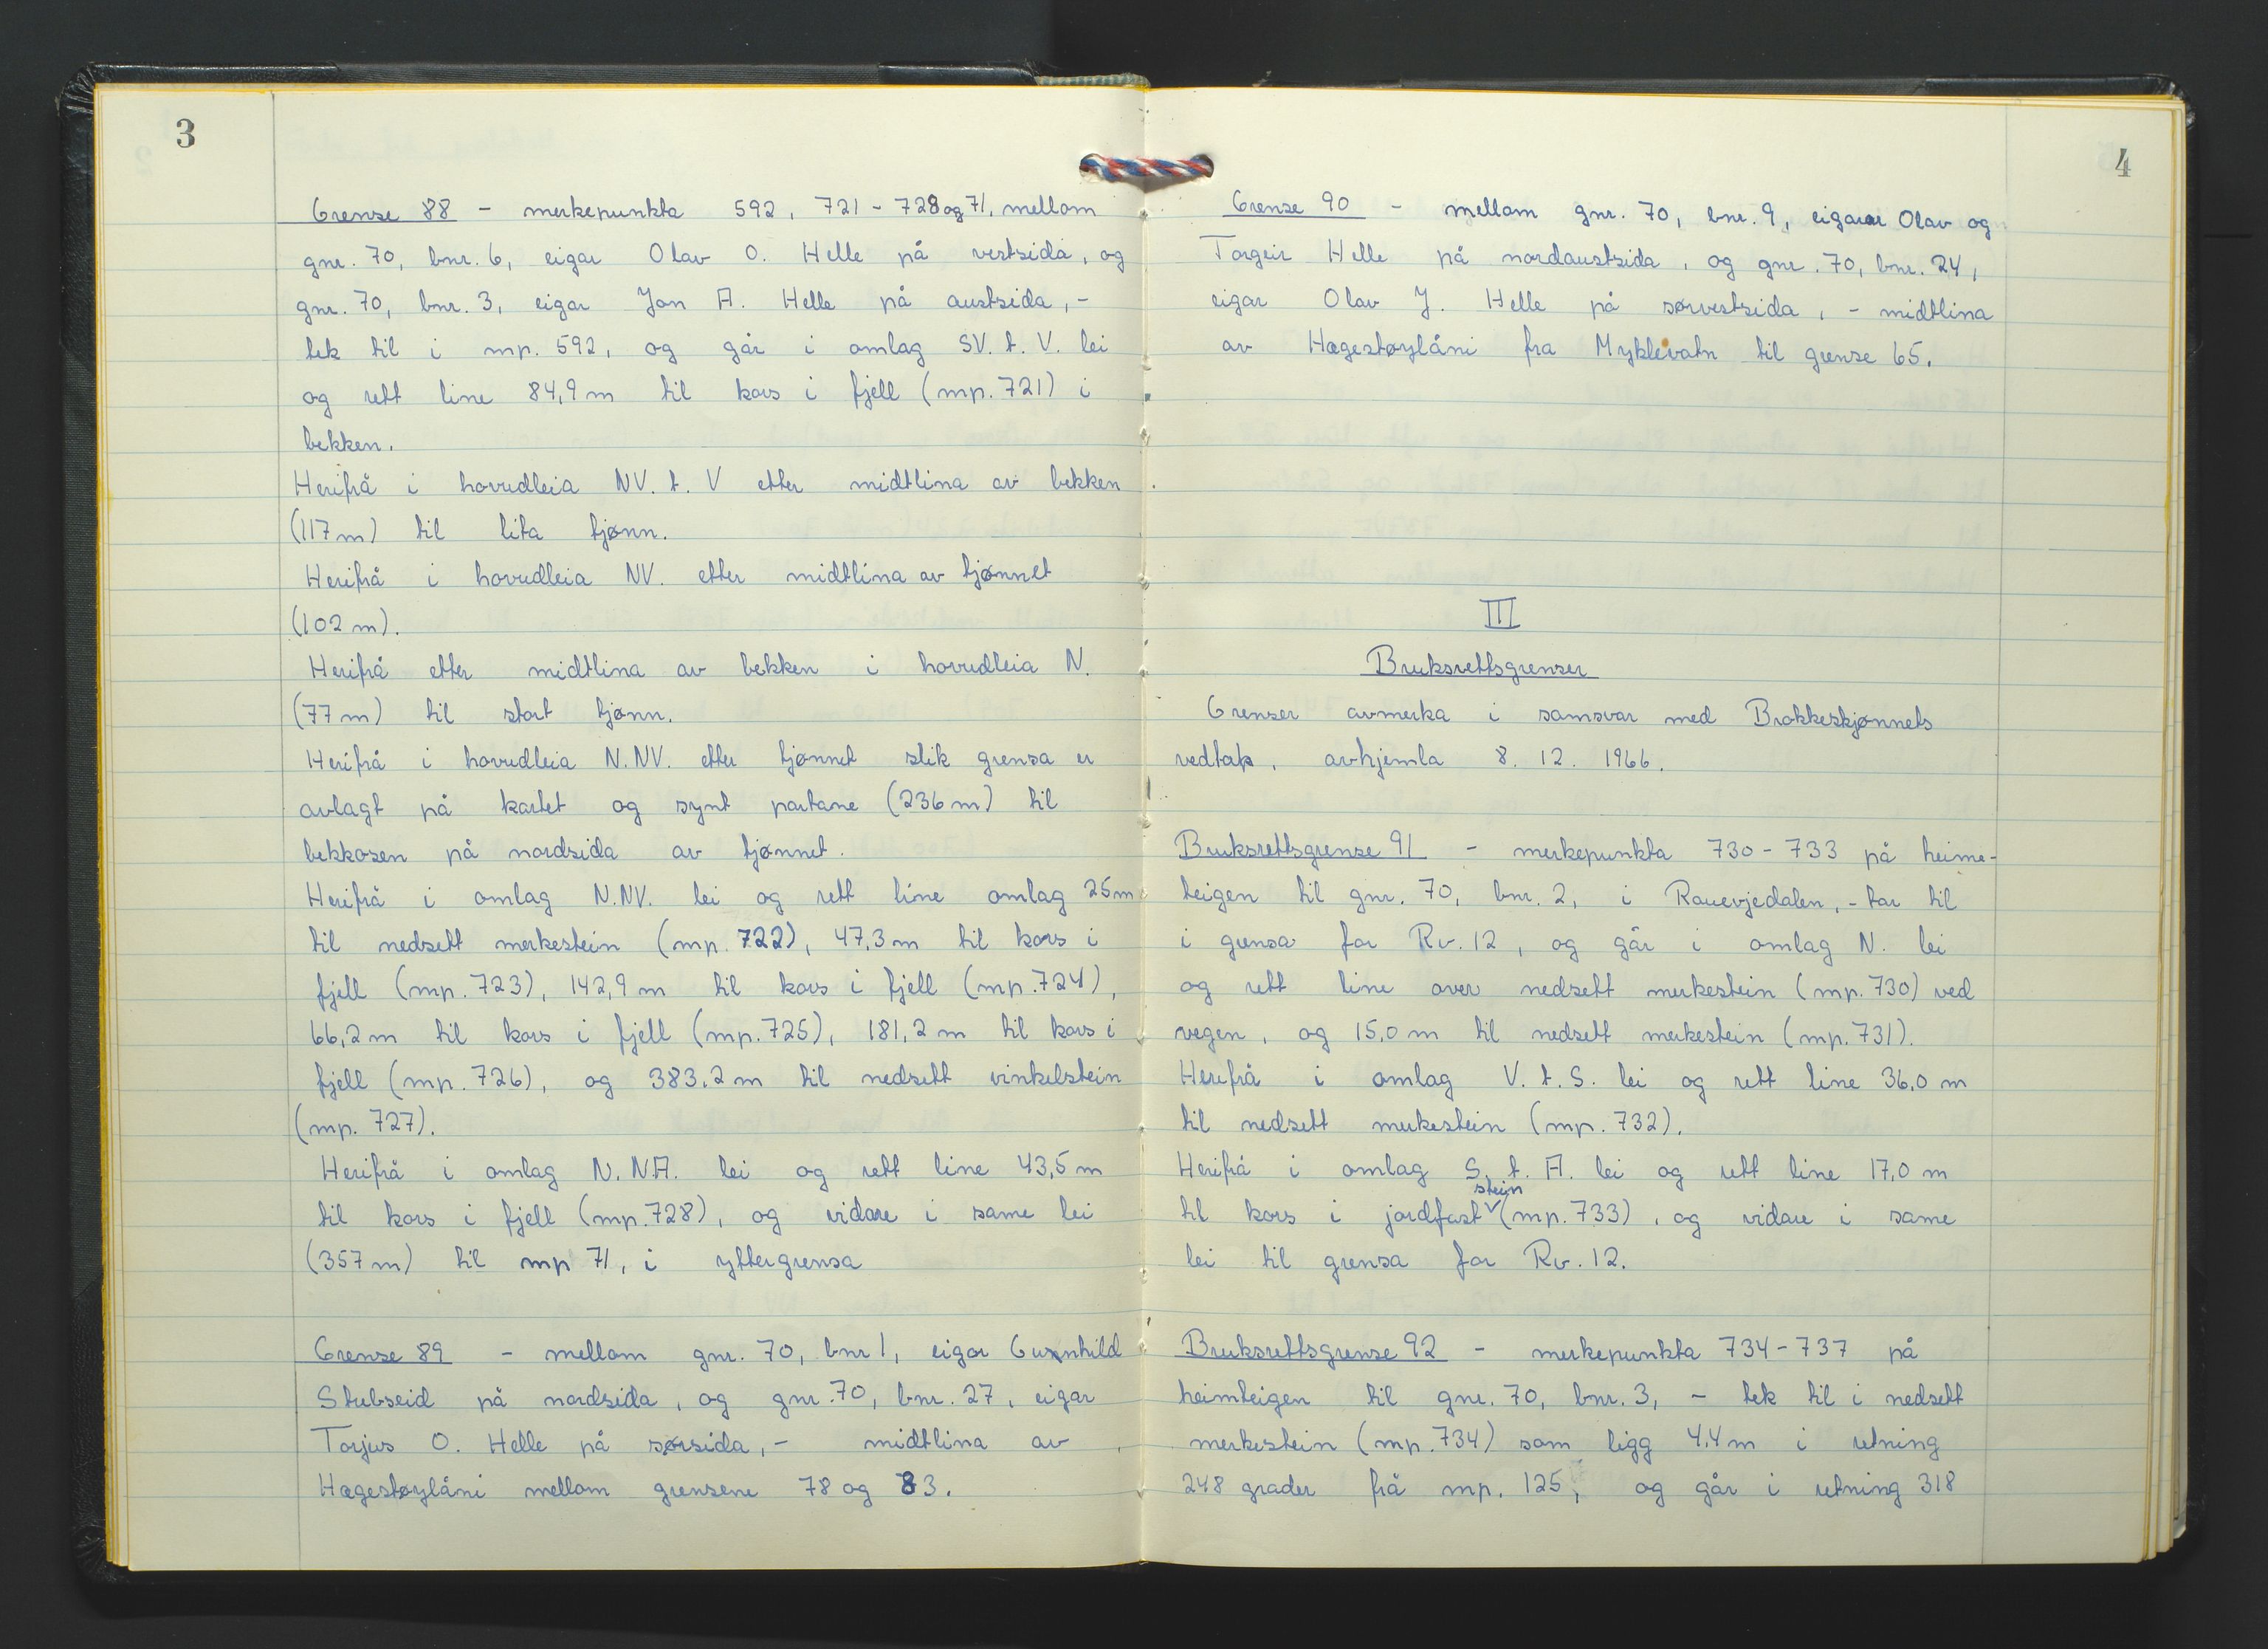 3
Grense 88 - merkepunkta 592, 721 - 728 og 71, mellom
gnr. 70, bnr. 6, eigar Olav O. Helle på vestsida, og
gnr. 70, bnr. 3, eigar Jon A. Helle på austsida, -
tek til i mp. 592, og går i omlag SV. t. V. lei
og rett line 84,9 m til kors i fjell (mp. 721) i
bekken.
Herifrå i hovudleia NV. t. V etter midtlina av bekken
(117 m) til lita tjønn.
Herifrå i hovudleia NV. etter midtlina av tjønnet
(102 m).
Herifrå etter midtlina av bekken i hovudleia N.
(77 m) til stort tjønn.
Herifrå i hovudleia N.NV. etter tjønnet slik grensa er
avlagt på kartet og synt partane (236 m) til
bekkosen på nordsida av tjønnet.
Herifrå i omlag N.NV. lei og rett line omlag 25 m
til nedsett merkestein (mp. 722), 47,3 m til kors i
fjell (mp. 723), 142,9 m til kors i fjell (mp. 724),
66,2 m til kors i fjell (mp. 725), 181,2 m til kors i
fjell (mp. 726), og 383,2 m til nedsett vinkelstein
(mp. 727).
Herifrå i omlag N.NA. lei og rett line 43,5 m
til kors i fjell (mp. 728), og vidare i same lei
(357 m) til mp 71, i yttergrensa
Grense 89 - mellom gnr. 70, bnr 1, eigar Gunnhild
Stubseid på nordsida, og gnr. 70, bnr. 27, eigar
Torjus O. Helle på sørsida, - midtlina av
Hægestøylåni mellom grensene 78 og 83.
4
Grense 90 - mellom gnr. 70, bnr. 9, eigarar Olav og
Torgeir Helle på nordaustsida, og gnr. 70, bnr. 24,
eigar Olav J. Helle på sørvestsida, - midtlina
av Hægestøylåni fra Myklevatn til grense 65.
III
Bruksrettsgrenser
Grenser avmerka i samsvar med Brokkeskjønnets
vedtak, avhjemla 8. 12. 1966.
Bruksrettsgrense 91 - merkepunkta 730 - 733 på heime-
teigen til gnr. 70, bnr. 2, i Rauevjedalen, - tar til
i grensa for Rv. 12, og går i omlag N. lei
og rett line over nedsett merkestein (mp. 730) ved
vegen, og 15,0 m til nedsett merkestein (mp. 731).
Herifrå i omlag V. t. S. lei og rett line 36,0 m
til nedsett merkestein (mp. 732).
Herifrå i omlag S. t. A. lei og rett line 17,0 m
til kors i jordfast stein (mp. 733), og vidare i same
lei til grensa for Rv. 12.
Bruksrettsgrense 92 - merkepunkta 734 - 737 på
heimteigen til gnr. 70, bnr. 3, - tek til i nedsett
merkestein (mp. 734) som ligg 4,4 m i retning
248 grader frå mp. 125, og går i retning 318